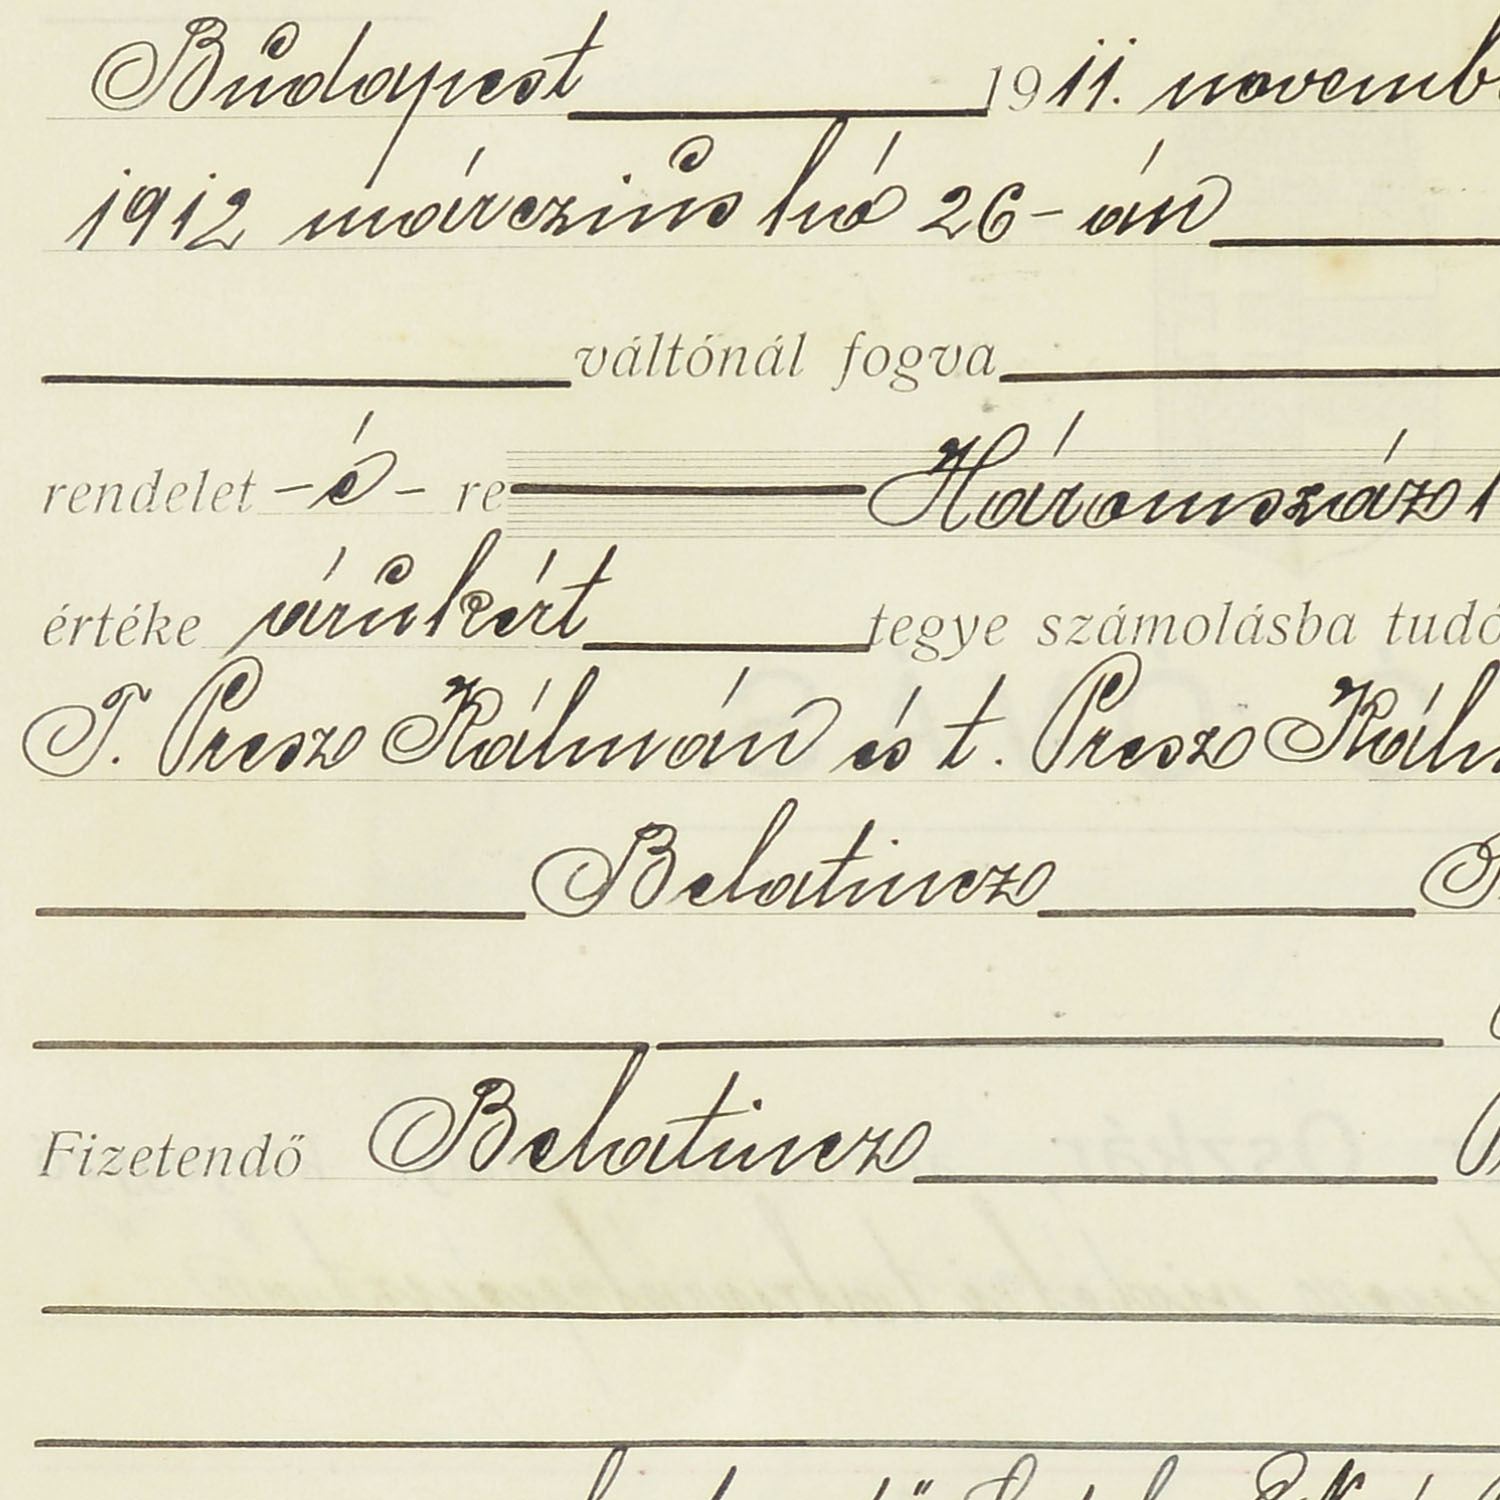 Budapest 1911. novemb
1912 márczius hó 26-án
váltónál fogva
rendelet -é- re Háromszáz
értéke árukért tegye számolásba tudó
T. Presz Kálmán és t. Presz Kálm
Belatincz
Fizetendő Belatincz